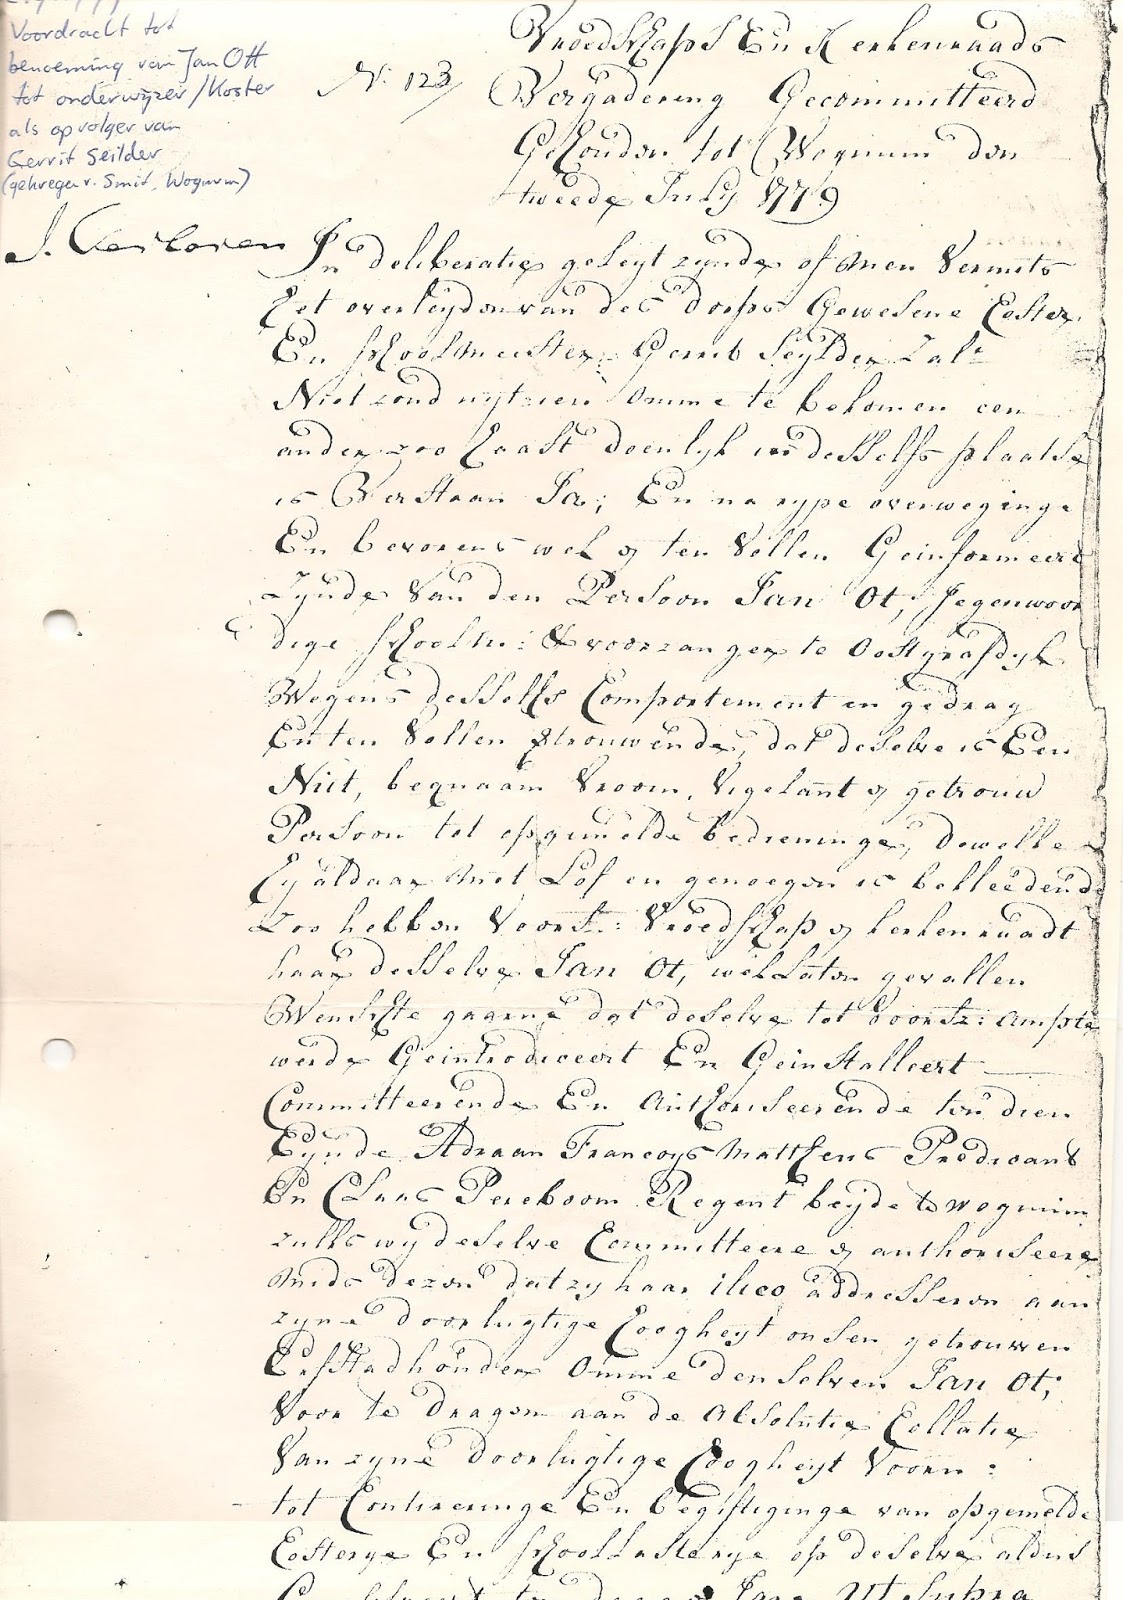 Voordracht tot
benoeming van Jan Ott
tot onderwijzer/Koster
als opvolger van
Gerrit Seilder
(gekregen v. Smit, Wognum)
N: 123
Vroedschaps En Kerkenraads
Vergadering Gecommitteerd
Gehouden tot Wognum den
tweede July 1779
J. Verloren
In deliberatie geleyt zynde of men Vermits
het overleyden van des dorps Gewesene Coster
En schoolmeester Gerrit Seylder Zalr
Niet zoud uytzien omme te bekomen een
ander zoo haast doenlyk in desselfs plaatse
is Verstaan Ja; En na rype overweginge
En bevorens wel & ten Vollen Geinformeert
Zynde Van den Persoon Jan Ot, Jegenwoor
dige schoolm: & voorzanger te Oostgrafdyk
Wegens desselfs Comportement en gedrag
En ten Vollen vertrouwende, dat deselve is Een
Nut, bequaam Vroom, Vigelant & getrouw
Persoon tot opgemelde bedieninge, dewelke
Hy aldaar met Lof en genoegen is bekleedende
Zoo hebben Voorsz: Vroedschap & kerkenraadt
haar desselve Jan Ot, wel laten gevallen
Wenschte gaarne dat deselve tot Voorsz: ampte
werde Geintroduceert En Geinstalleert
Committeerende En Authoriseerende ten dien
Eynde Adriaan Francoys Matthens Predicant
En Claas Pereboom Regent beyde te wognum
zulks wy deselve Committeere & authoriseere
mids dezen dat zy haar illico addresseren aan
zyne doorlugtige Hoogheyt onsen getrouwen
Erfstadhouder Omme denselven Jan Ot;
Voor te dragen aan de Absolutie Collatie
Van zyne doorlugtige Hoogheyt Voorn:
tot Confireringe En begiftiginge van opgemelde
Costerye En schoollasterye op deselve aldus
Jare Ut Supra